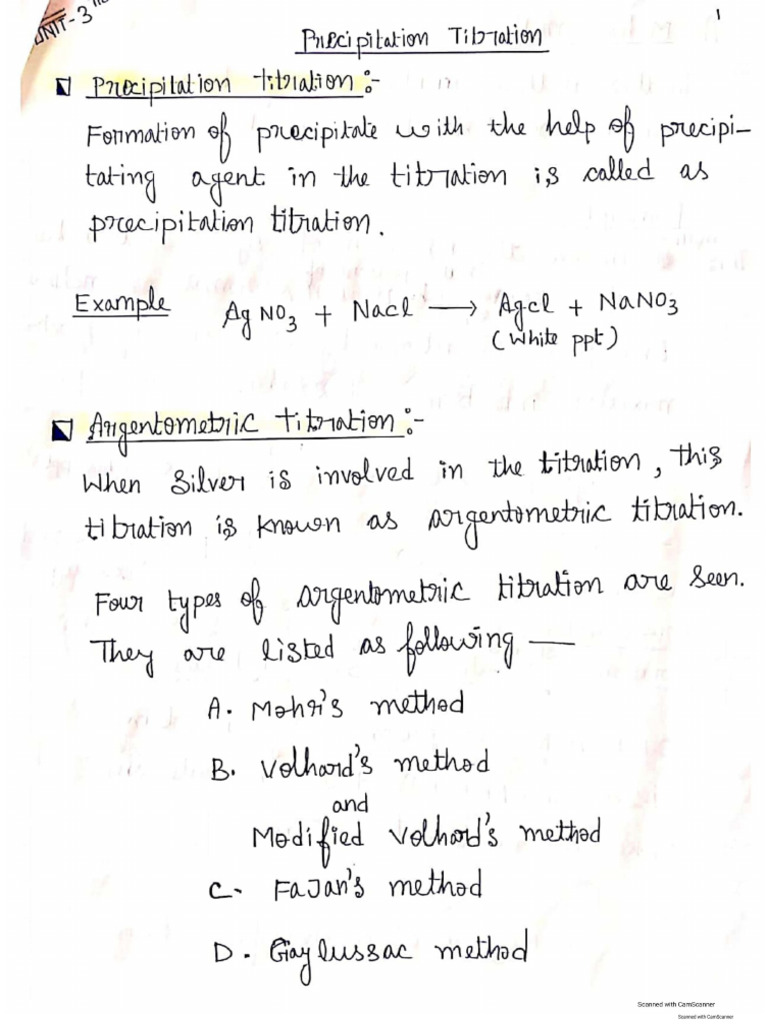 UNIT-3
1
Precipitation Titration
Precipitation titration:-
Formation of precipitate with the help of precipi-
tating agent in the titration is called as
precipitation titration.
Example AgNO3 + Nacl → Agcl + NaNO3
(White ppt)
Argentometric titration:-
When Silver is involved in the titration, this
titration is known as argentometric titration.
Four types of argentometric titration are seen.
They are listed as following —
A. Mohr's method
B. Volhard's method
and
Modified Volhard's method
C- FaJan's method
D. Gaylussac method
Scanned with CamScanner
Scanned with CamScanner